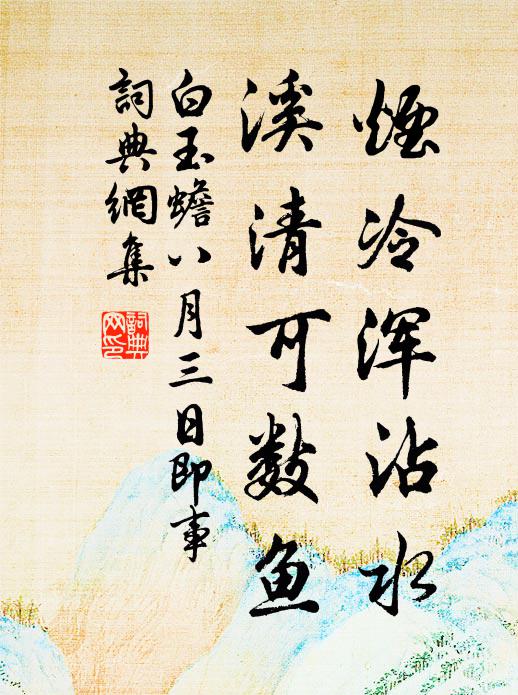 煙冷浑沾水
溪清可数鱼
白玉蟾八月三日即事
詞典網集
詞典
网印